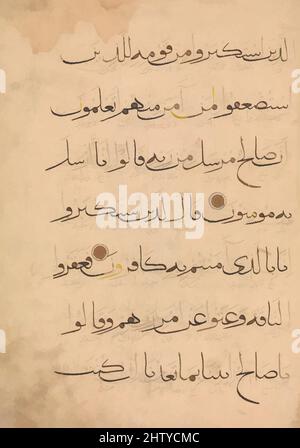 الذين استكبروا من قومه للذين
استضعفوا لمن امن منهم اتعلمون
ان صالحا مرسل من ربه قالوا انا بما ارسل
به مومنون قال الذين استكبروا
انا بالذي امنتم به كافرون فعقروا
الناقه وعتوا عن امر ربهم وقالوا
يا صالح ائتنا بما تعدنا ان كنت
alamy
Image ID: 2HTYCMC
www.alamy.com